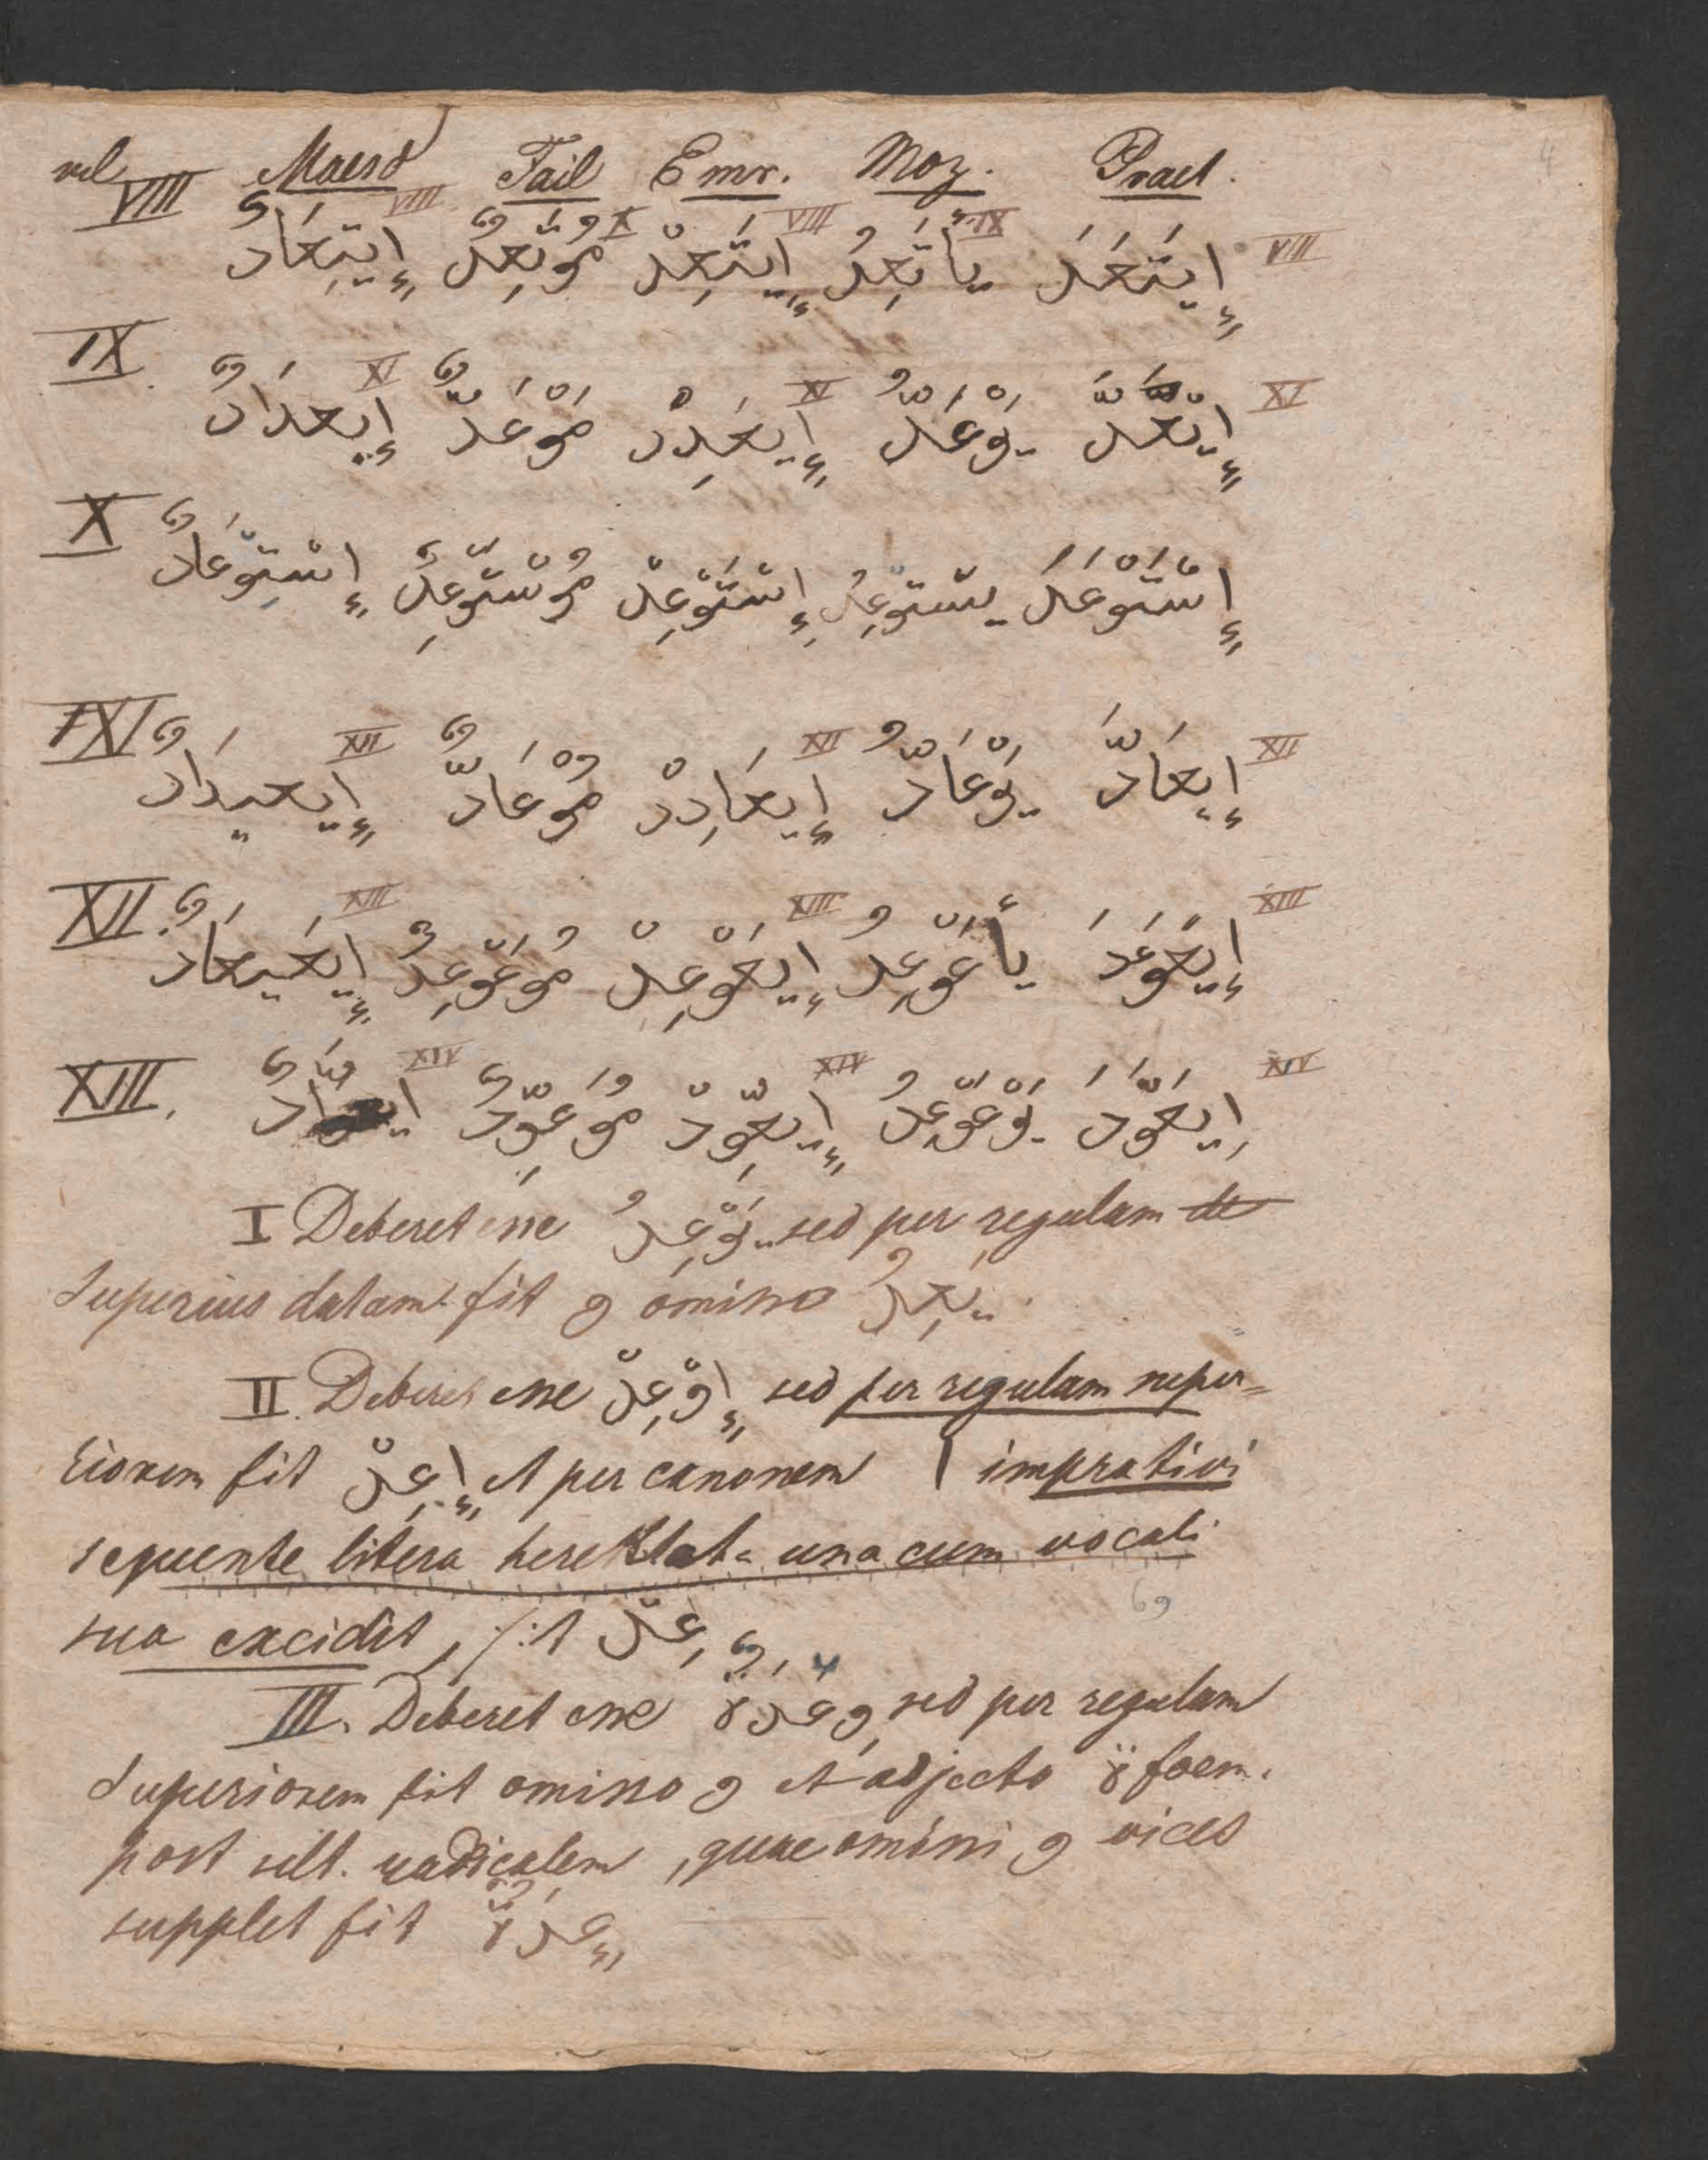 vel Maesd Fail Emr. Moz. Praet.
VIII VIII X VIII IX VIII
إِيتَعَدَ يأتَعِدُ إِيتَعِدْ مُوتَعِدٌ إِيتِعَادٌ
IX XI XI XI
إِيعَدَّ يَوْعَدُّ إِيعَدِدْ مُوْعَدٌّ إِيعدَادٌ
X
إِسْتَوْعَدَ يسْتوْعِدُ إِسْتَوْعِدْ مُوسْتَوْعِدٌ إِسْتِوْعَادٌ
XI XII XII XII
إِيعَادَّ يَوْعَادُّ إِيعَادِدْ مُوْعَادٌّ إِيعيدَادٌ
XII. XIII XIII XIII
إِيعَوْعَدَ يأعَوْعِدُ إِيعَوْعِدْ مُوعَوْعِدٌ إِيعَيعَادٌ
XIII. XIV XIV XIV
اِيعَوَّدَ يَوْعَوّعِدُ إِيعَوِّدْ مُوعَوِّدٌ
I Deberet esse يَوْعِدُ sed per regulam de
Superius datam fit و omisso يَعِدُ
II. Deberet esse إِوْعِدْ sed per regulam super=
riorem fit إِعِدْ et per canonem ا imprativi
sequente litera una cum vocali
sua excidit, fit عِدْ
III. Deberet esse وِعْدَةٌ sed per regulam
Superiorem fit omisso و et adjecto ة foem.
post ult. radicalem, quae omissi و vices
supplet fit عِدَةٌ
69
4